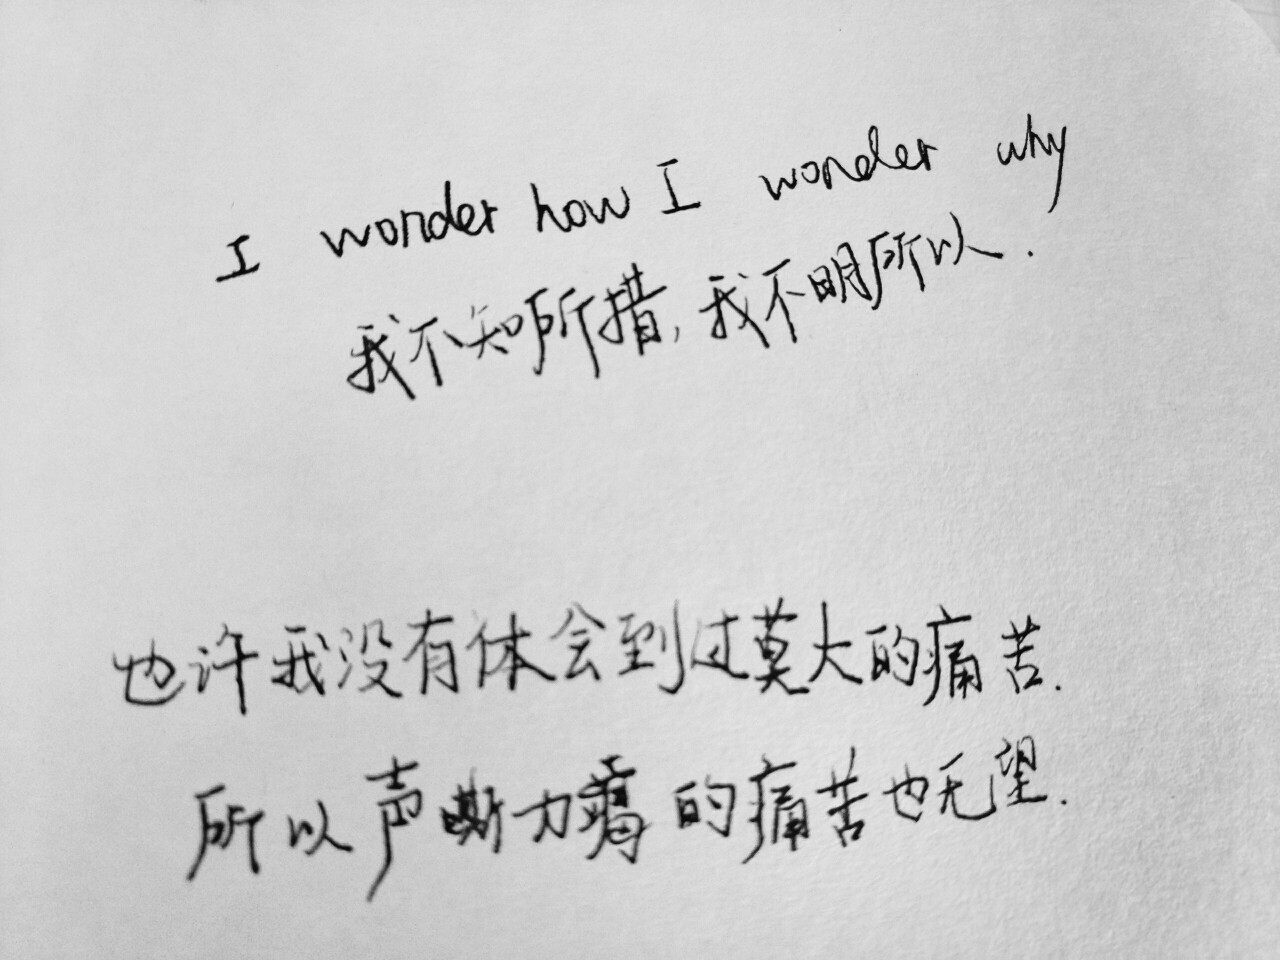 I wonder how I wonder why
我不知所措,我不明所以.
也许我没有体会到过莫大的痛苦.
所以声嘶力的痛苦也无望.